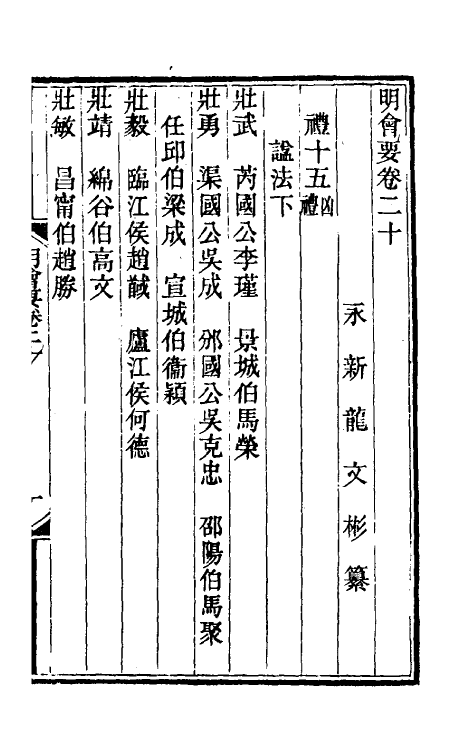 明會要卷二十
永新龍文彬纂
禮十五凶禮
諡法下
壯武　芮國公李瑾　景城伯馬榮
壯勇　渠國公吳成　邠國公吳克忠　邵陽伯馬聚
任邱伯梁成　宣城伯衞潁
壯毅　臨江侯趙　廬江侯何德
壯靖　綿谷伯高文
壯敏　昌甯伯趙勝
明會要卷二十